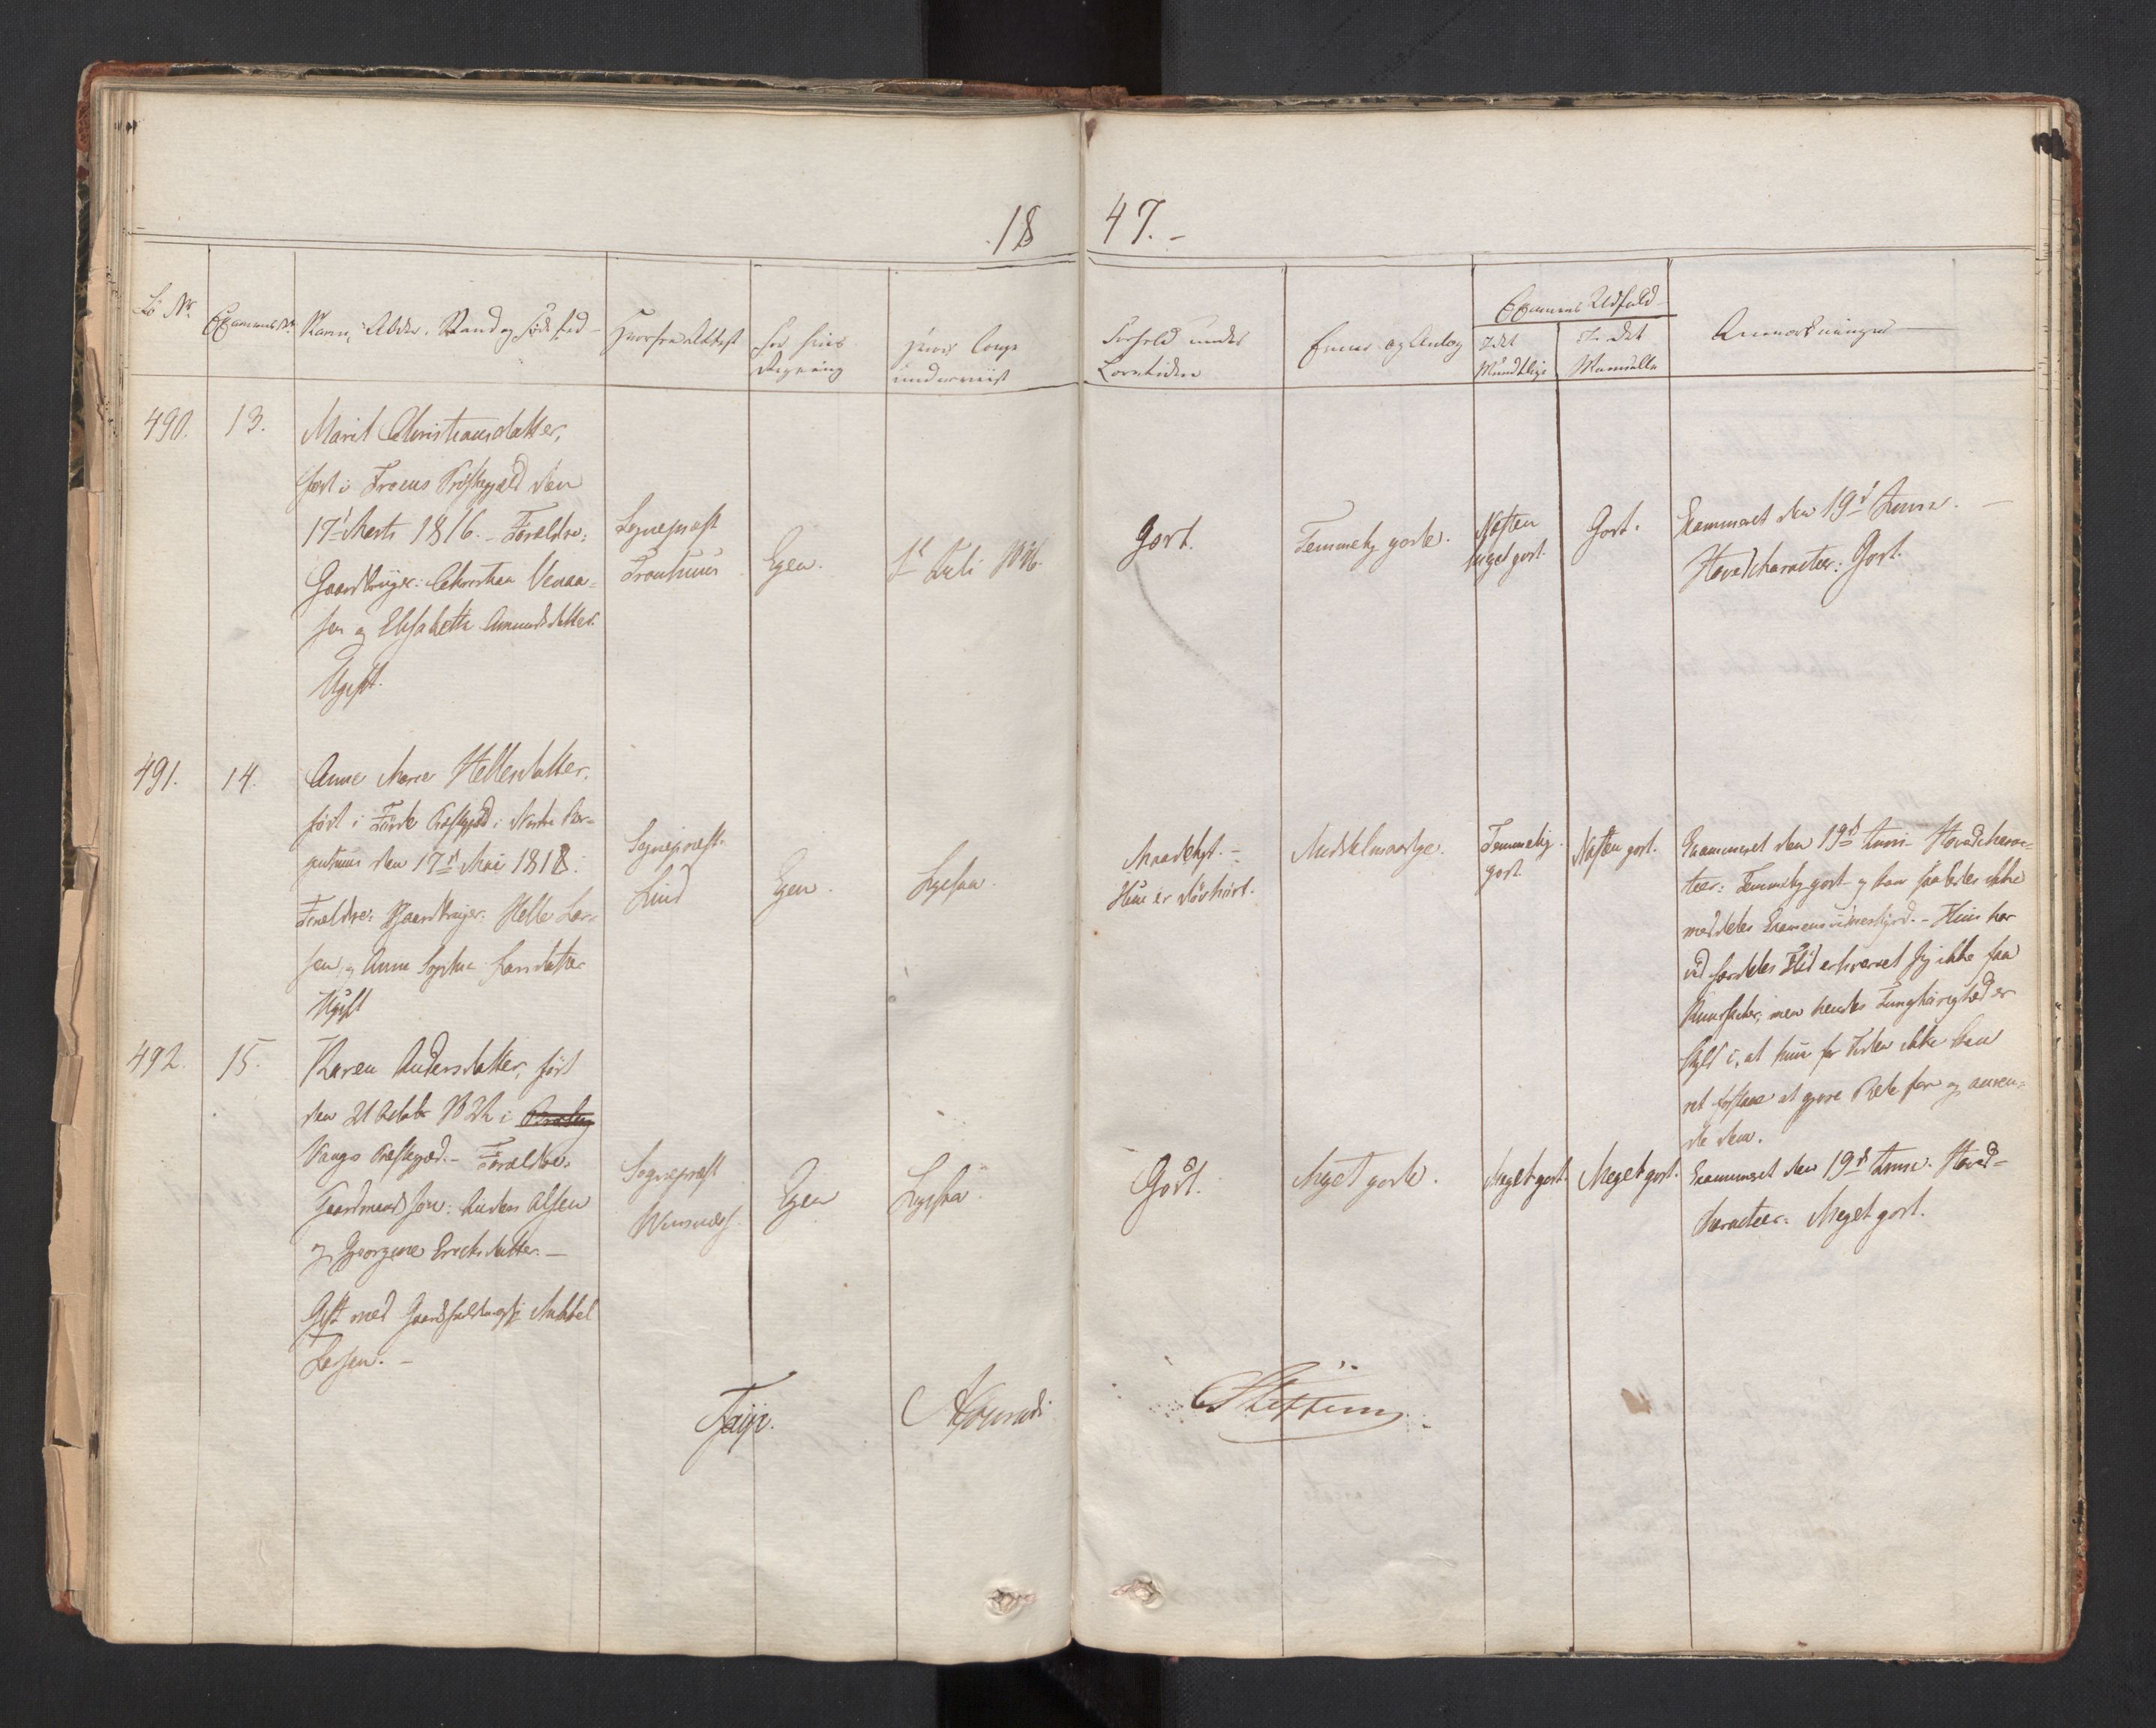 18 47.
Lb. Nr.
Examens Nr.
Navn, Alder, Stand og Födested
Hvorfra Attest
For hvis
Regning
Hvor længe
underviist
Forhold under
Læretiden
Evner og Anlæg
Examens Udfald
I det
Mundtlige
I det
Manuelle
Anmærkninger
490.
13.
Marit Christiansdatter,
født i Præstegjæld den
17d Marts 1816. Forældre:
Gaardbruger: Christian
sen og Elisabeth Amundsdatter.
Ugift.
Sognepræst
Egen.
1ste Juli 1846.
Godt.
Temmelig gode.
Næsten
meget godt.
Godt.
Examineret den 19d Juni.
Hovedcharacteer: Godt.
491.
14.
Anne Marie Hellesdatter,
født i Præstegjæld i Nordre Ber-
genhuus den 17d Mai 1818.
Forældre: Gaardbruger: Helle Lar-
sen og Anne Sophie Larsdatter
Ugift
Sognepræst
Lind
Egen.
Ligesaa.
Maadeligt. -
Hun er døvhört.
Middelmaadige.
Temmelig
godt.
Næsten godt.
Examineret den 19d Juni. Hovedcharac-
teer: Temmelig godt og kan saaledes ikke
meddeles Examensvidnesbyrd. - Hun har
ved særdeles Flid erhvervet sig ikke faa
Kundskaber, men hendes Tunghörighed er
Skyld i, at hun for Tiden ikke kan
ret forstaae at gjöre Rede for og anven-
de dem.
492.
15.
Karen Andersdatter, født
den 21 Octobr 1822 i
Vangs Præstegjæld. - Forældre:
Gaardmand Anders Olsen
og Georgine Ericksdatter. -
Gift med Mikkel
Larsen. -
Sognepræst
Egen
Ligesaa.
Godt.
Meget gode.
Meget godt.
Meget godt.
Examineret den 19d Juni. Hoved-
character: Meget godt.
Faye.
Conradi
Steffens